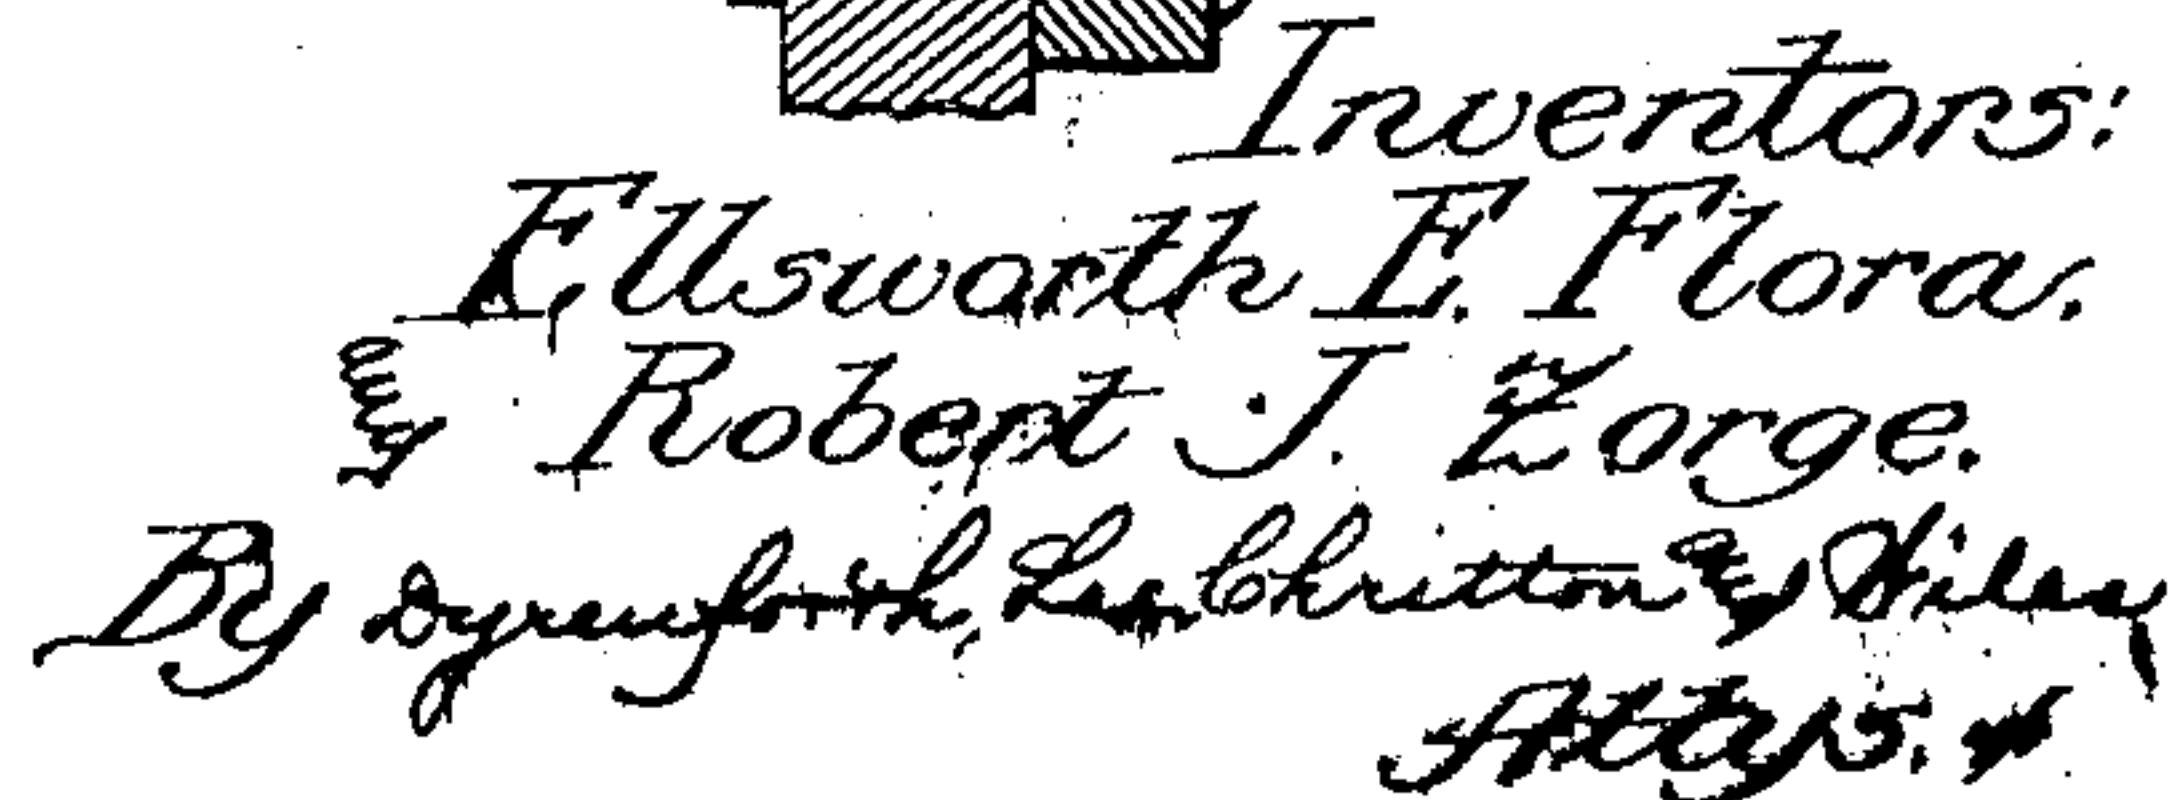 Inventors:
Ellsworth E. Flora.
& Robert J. Zorge.
By Dyrenforth, Lee, Chritton & Wiles,
Attys.